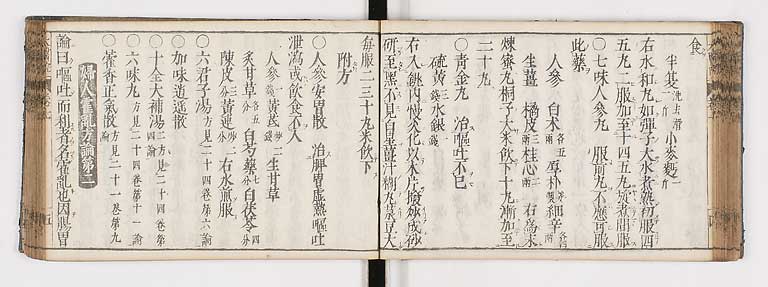 食
半夏 洗去滑 小麥麪二
右水和丸如彈子大水煮熟初服四
五丸二服加至十四五丸旋煮間服
○七味人參丸 服前丸不應可服
此藥
人參 白朮 各五兩 厚朴 製 細辛 各四兩
生薑 橘皮 三兩 桂心 二兩 右爲末
煉蜜丸桐子大米飲下十丸漸加至
二十丸
○青金丸 治嘔吐不已
硫黃 水銀
右入銚內慢火化以木片
研至黑不見白 薑汁糊丸綠豆大
每服二三十丸米飲下
附方
○人參安胃散 治脾胃虛熱嘔吐
泄瀉或飲食不入
人參 一錢 黃芪 二錢 生甘草
炙甘草 各五分 白芍藥 七分 白茯苓 四分
陳皮 三分 黃連 二分 右水煎服
○六君子湯 方見二十四卷第六論
○加味逍遥散
○十全大補湯 二方見二十四卷第四論
○六味丸 方見二十四卷第十一論
○藿香正氣散 方見二十一卷第九
婦人霍亂方論第二
論曰嘔吐而利者名霍亂也因腸胃